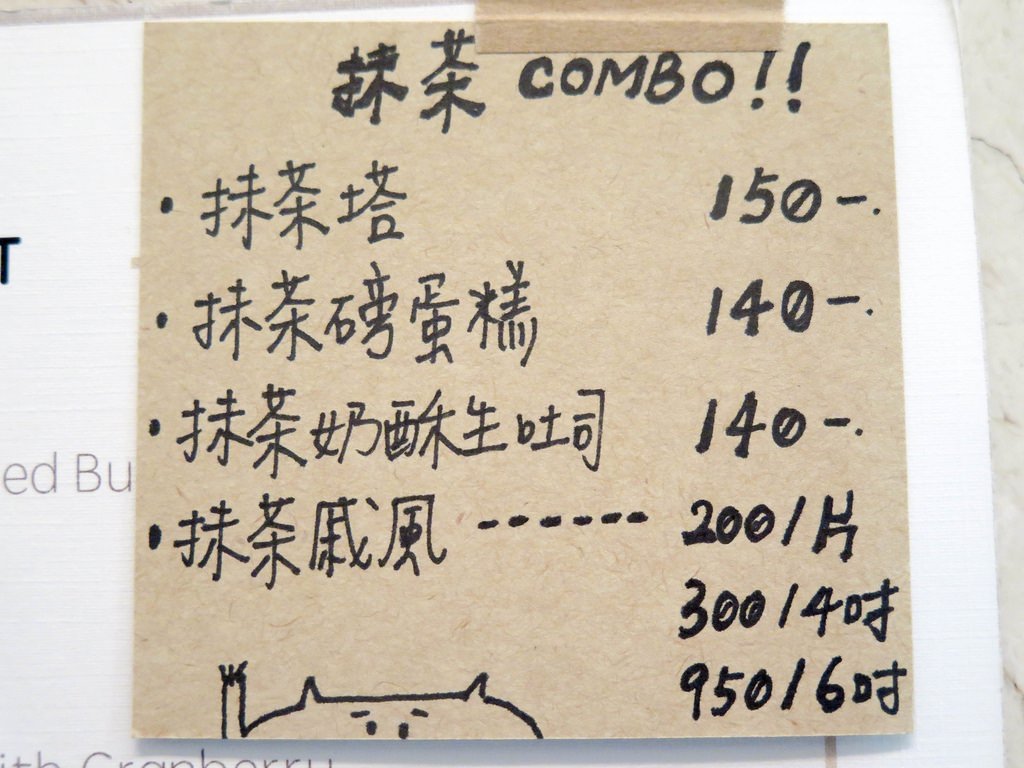 抹茶 COMBO!!
・抹茶塔 150-.
・抹茶磅蛋糕 140-.
・抹茶奶酥生吐司 140-.
・抹茶戚風 ------ 200/片
300/4吋
950/6吋
T
ed Bu
ith Cranberry